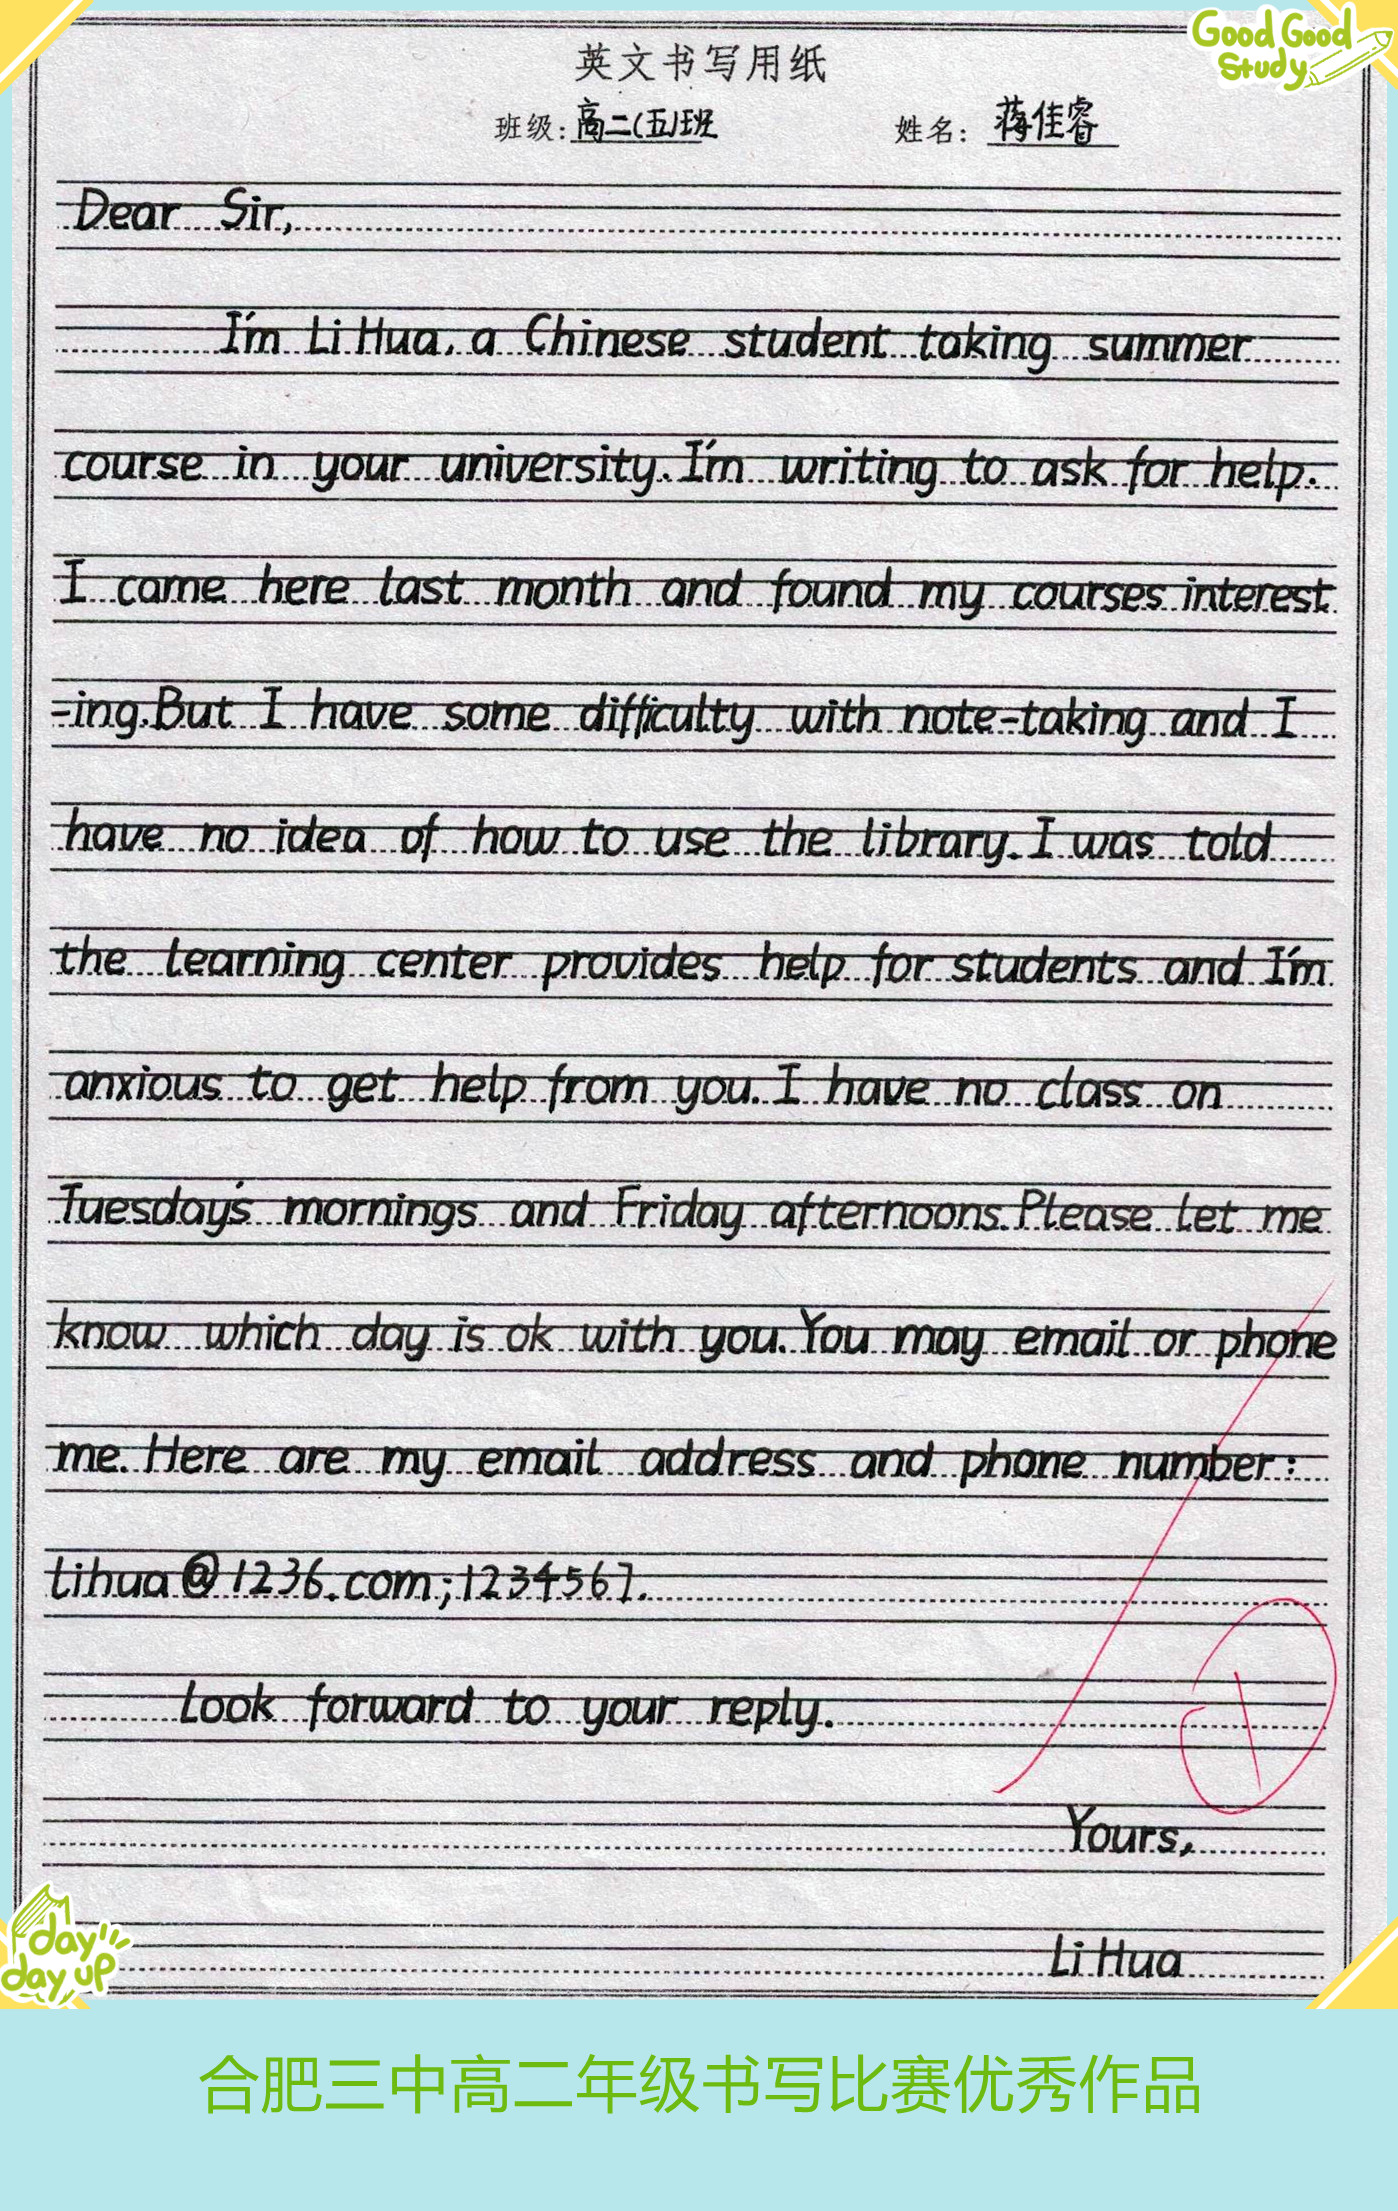 Good Good
Study
英文书写用纸
班级:高二(五)班 姓名:蒋佳睿
Dear Sir,
I'm Li Hua, a Chinese student taking summer
course in your university. I'm writing to ask for help.
I came here last month and found my courses interest
-ing. But I have some difficulty with note-taking and I
have no idea of how to use the library. I was told
the learning center provides help for students and I'm
anxious to get help from you. I have no class on
Tuesday's mornings and Friday afternoons. Please let me
know which day is ok with you. You may email or phone
me. Here are my email address and phone number:
lihua@1236.com; 1234567.
Look forward to your reply.
Yours,
Li Hua
day
day up
合肥三中高二年级书写比赛优秀作品